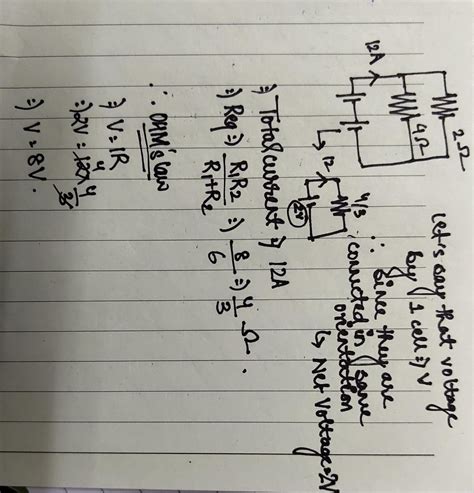 12A
2Ω
4Ω
12
4/3
2V
Let's say that voltage
by 1 cell ⇒ V
∴ Since they are
connected in same
orientation
↳ Net Voltage = 2V
⇒ Total current ⇒ 12A
⇒ Req ⇒ R1R2/R1+R2 ⇒ 8/6 ⇒ 4/3 Ω.
∴ OHM's law
⇒ V = IR
⇒ 2V = 12 × 4/3
⇒ V = 8V.